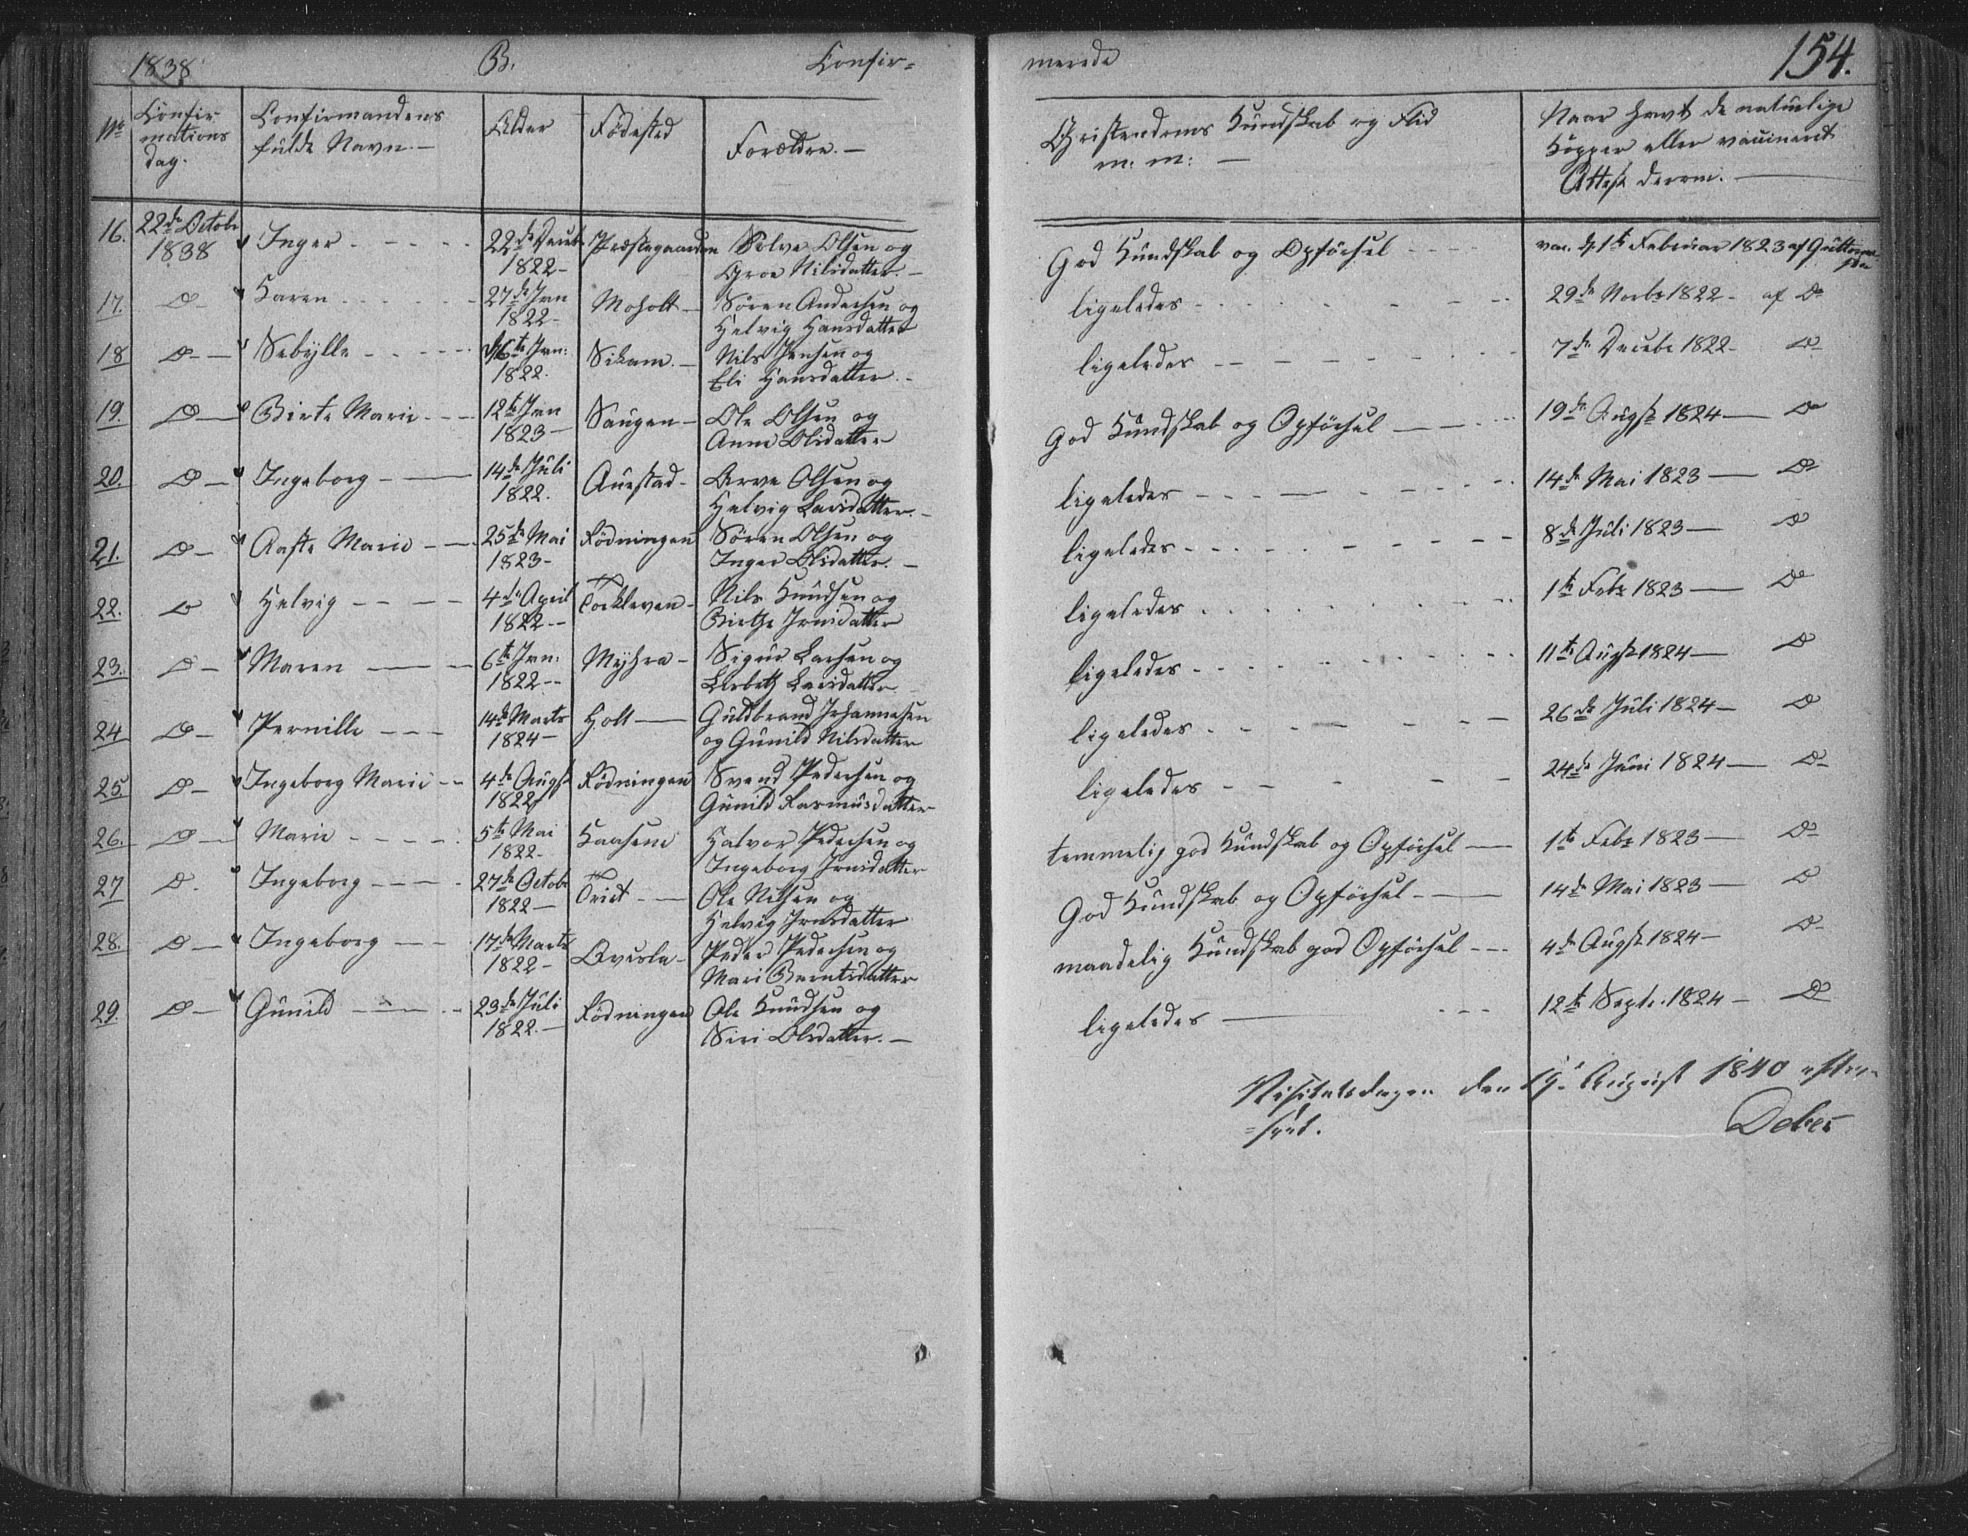 1838 B. Confir= merede 154.
No Confirmations dag. Confirmandens fulde Navn. Alder Fødested Forældre. Christendoms Kundskab og Flid m: m: Naar havt de naturlige Kopper eller vaccineret Attest derom.
16. 22de Octobr 1838 Inger 22de Decebr 1822 Præstegaarden Solve Olsen og Groe Nilsdatter God Kundskab og Opførsel vac. d. 1te Februar 1823 af
17. Do Karen 27de Jan 1822 Moholt Søren Andersen og Helvig Hansdatter ligeledes 29de Novbr 1822 af Do
18 Do Sebylle 16te Jan: 1822. Nils Jensen og Eli Hansdatter ligeledes 7de Decebr 1822 Do
19. Do Birte Marie 12te Jan 1823 Saugen Ole Olsen og Anne Olsdatter God Kundskab og Opførsel 19de Augst 1824 Do
20. Do Ingeborg 14de Juli 1822. Auestad Arve Olsen og Helvig Larsdatter ligeledes 14de Mai 1823 Do
21. Do Aaste Marie 25de Mai 1823 Rødningen Søren Olsen og Inger Olsdatter ligeledes 8de Juli 1823 Do
22. Do Helvig 4de April 1822 Torkleven Nils Knudsen og Birthe Jensdatter ligeledes 1te Febr 1823 Do
23. Do Maren 6te Jan: 1822 Myhra Sigur Larsen og Lisbeth Larsdatter ligeledes 11te Augst 1824 Do
24 Do Pernille 14de Marts 1824 Holt Guldbrand Johannesen og Gunild Nilsdatter ligeledes 26de Juli 1824 Do
25 Do Ingeborg Marie 4de Augst 1822 Rødningen Svend Pedersen og Gunild Rasmusdatter ligeledes 24de Juni 1824 Do
26. Do Marie 5te Mai 1822 Kaasene Halvor Pedersen og Ingeborg Jensdatter temmelig god Kundskab og Opførsel 1te Febr 1823 Do
27 Do. Ingeborg 27de Octobr 1822 Ole Nilsen og Helvig Jensdatter God Kundskab og Opførsel 14de Mai 1823 Do
28. Do Ingeborg 17de Marts 1822 Qvisla Peder Pedersen og Mari Berntsdatter maadelig Kundskab god Opførsel 4de Augst 1824 Do
29. Do Gunild 23de Juli 1822. Rødningen Ole Knudsen og Siri Olsdatter. ligeledes 12te Septr. 1824 Do
Visitatsdagen den 19. August 1840 efter=
=seet.